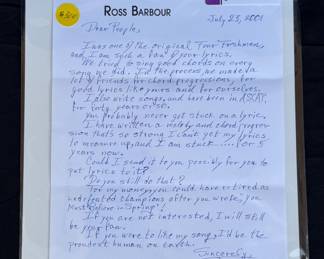 ROSS BARBOUR
July 25, 2001
Dear People,
I was one of the original Four Freshmen,
and I am such a fan of your lyrics.
We tried to sing good chords on every
song we did. In the process, we made a
lot of friends for chord progressions, for
good lyrics like yours and for ourselves.
I also write songs, and have been in ASCAP,
for forty years or so.
You probably never get stuck on a lyric.
I have written a melody and chord progres-
sion that's so strong I can't get my lyrics
to measure up, and I am stuck..... for 5
years now.
Could I send it to you possibly for you to
put lyrics to it?
Do you still do that?
For my money, you could have retired as
undefeated champions after you wrote, "You
Must Believe in Spring"!
If you are not interested, I will still
be your fan.
If you were to like my song, I'd be the
proudest human on earth.
Sincerely,